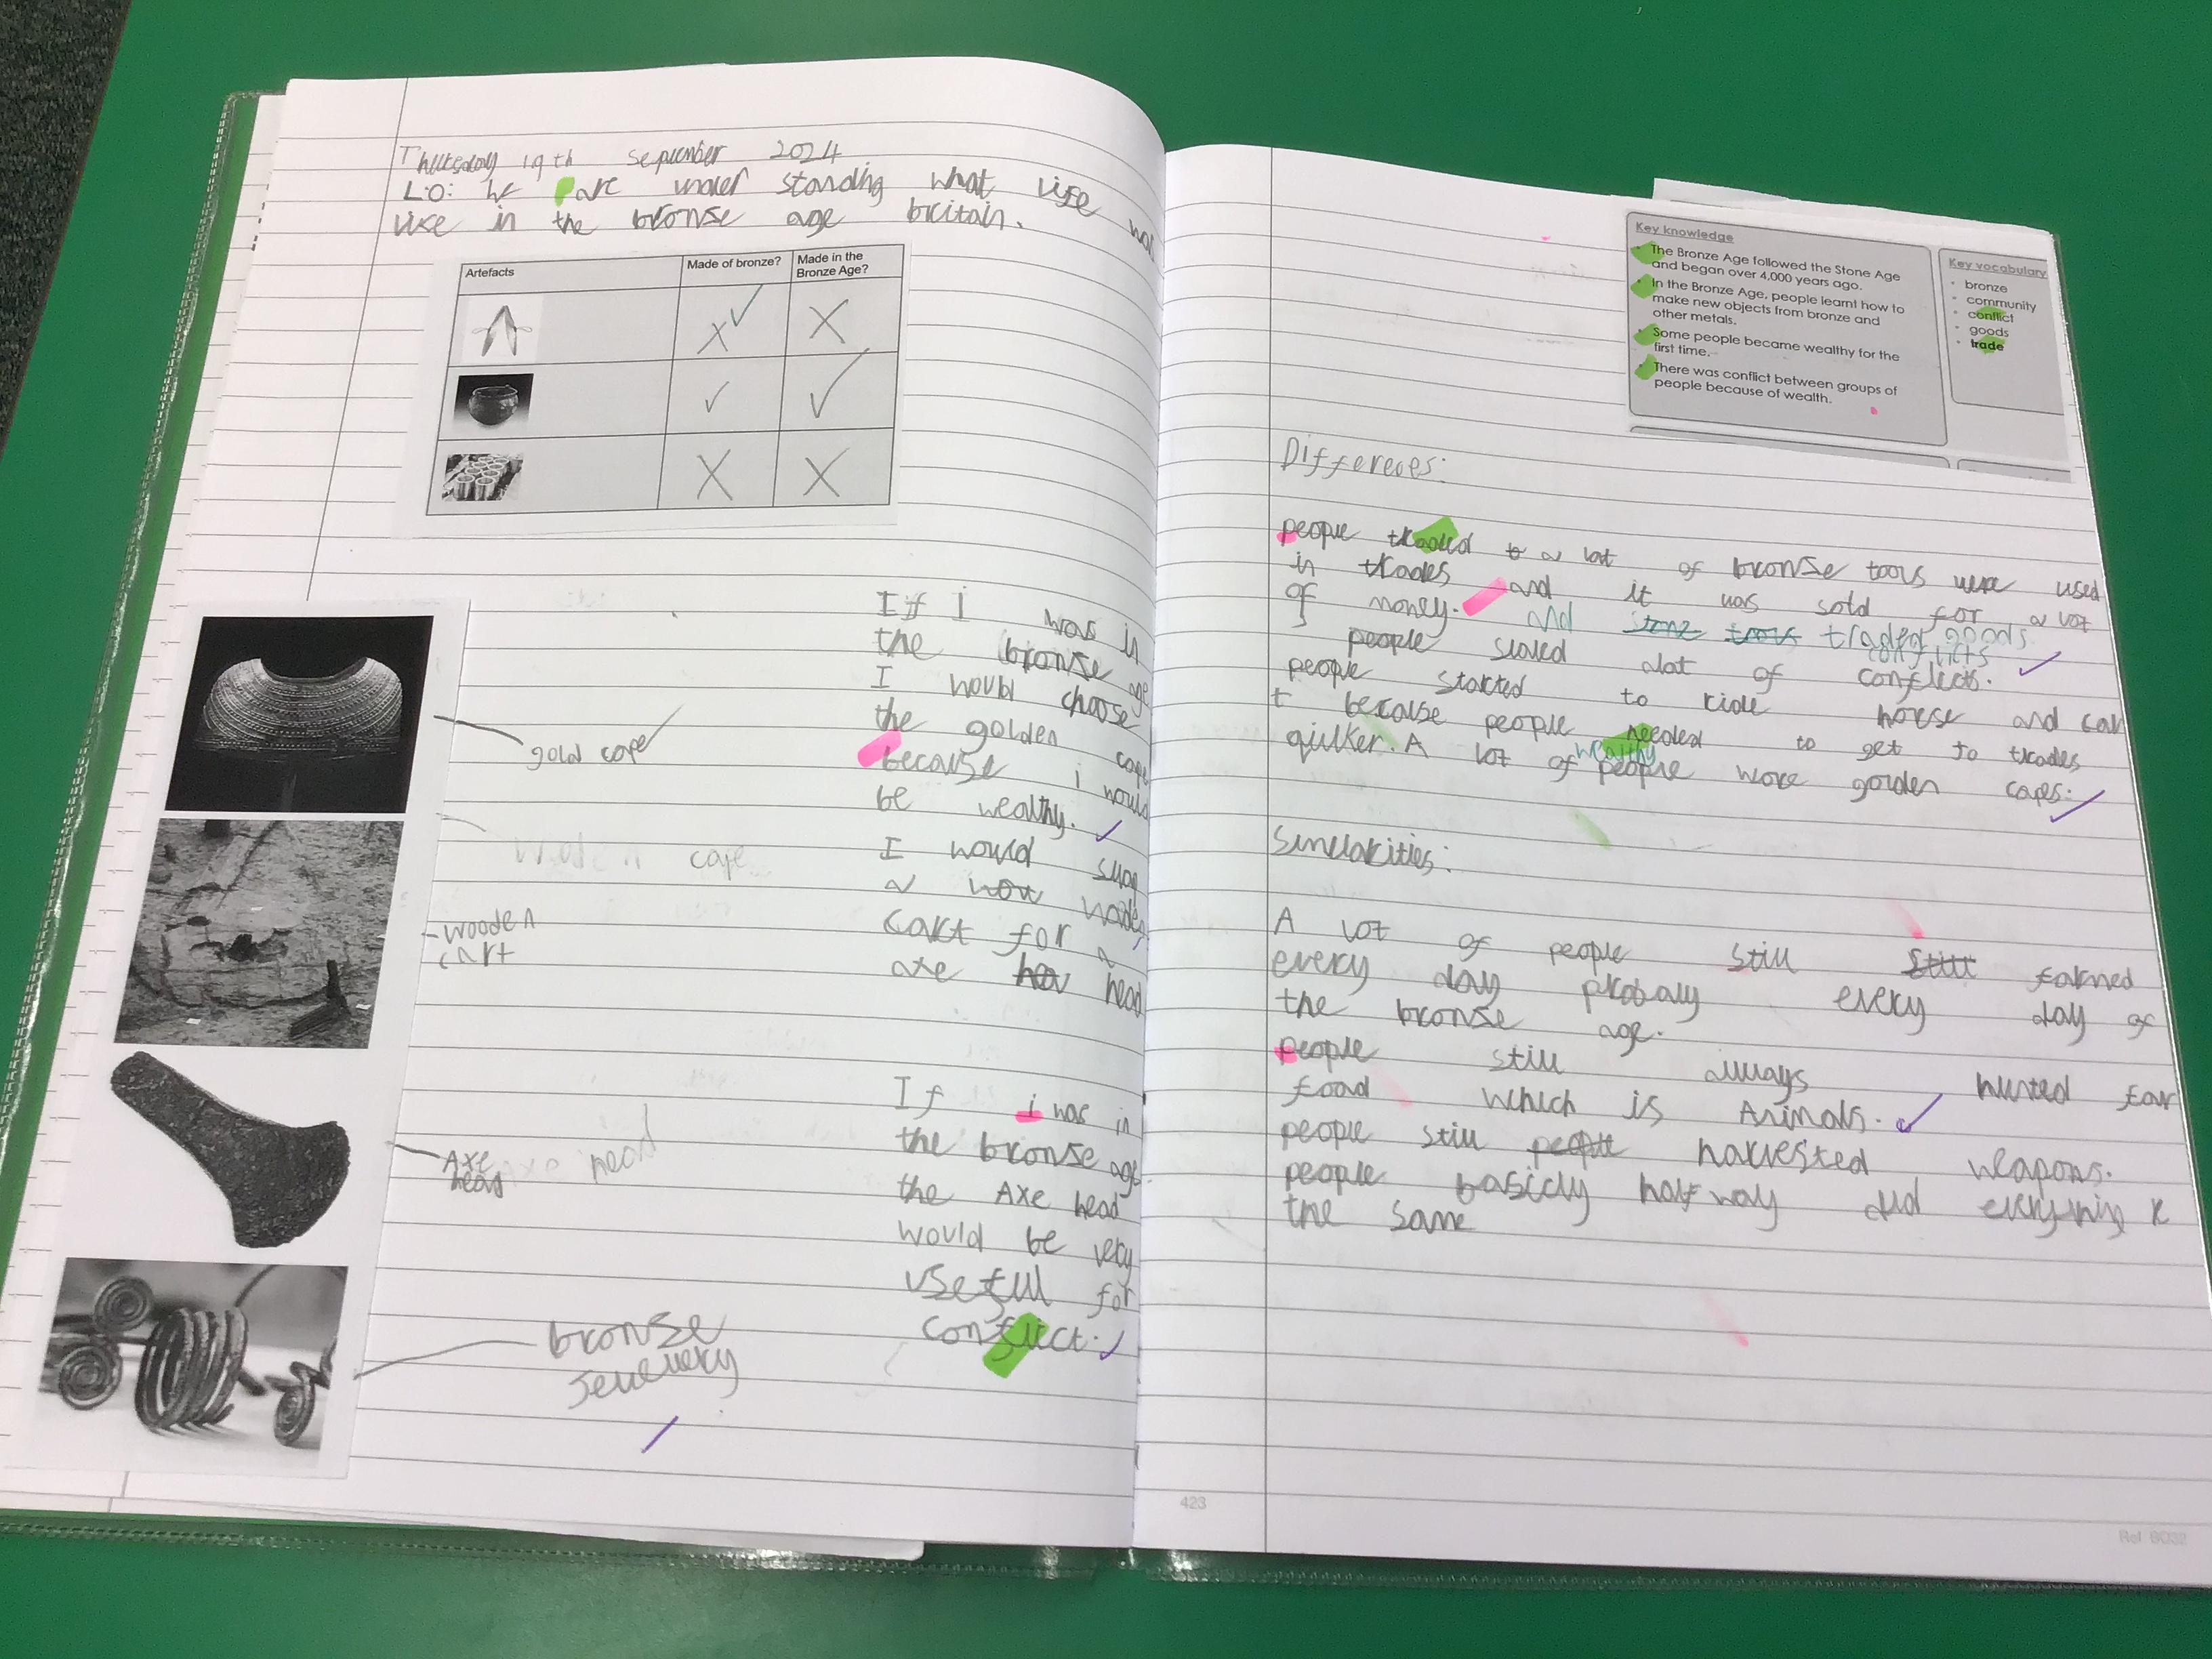 Thursday 19th September 2024
LO: We are under standing what life was
like in the bronse age britain.
Artefacts
Made of bronze?
Made in the
Bronze Age?
gold cape
wooden
cart
Axe head
Axe
head
bronse
Jewellery
If I was in
the bronse age
I would choose
the golden cape
because i would
be wealthy.
I would swap
a wooden
cart for a
axe head
If i was in
the bronse age
the Axe head
would be very
useful for
conflict.
Key knowledge
• The Bronze Age followed the Stone Age
and began over 4,000 years ago.
• In the Bronze Age, people learnt how to
make new objects from bronze and
other metals.
• Some people became wealthy for the
first time.
• There was conflict between groups of
people because of wealth.
Key vocabulary
• bronze
• community
• conflict
• goods
• trade
Differeces:
people traded a lot of bronse tools were used
in trades and it was sold for a lot
of money. and stone tools traded goods.
conflicts
people alot of conflicts.
people started to ride horse and car
t because people needed to get to trades
quilker. A lot of wealthy people wore golden capes.
Similarities:
A lot of people still still farmed
every day probaly every day of
the bronse age.
people still always hunted for
food which is Animals.
people still harvested weapons.
people basicly half way did everything
the same
423